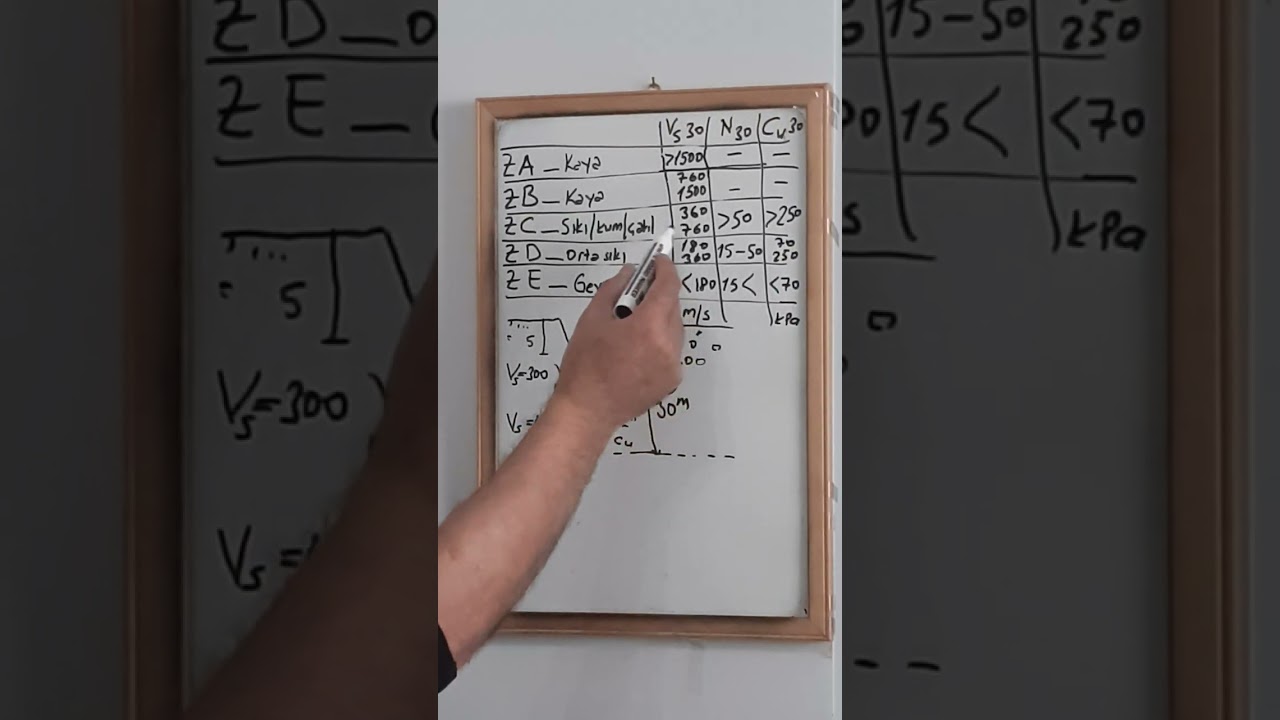 Vs 30 N30 Cu30
ZA _ Kaya >1500 – –
ZB _ Kaya 760 1500 – –
ZC _ Sıkı/kum/çakıl 360 760 >50 >250
ZD _ orta sıkı 180 360 15-50 70 250
ZE _ <180 15< <70
m/s kPa
5
Vs=300
Vs=
30m
Cu